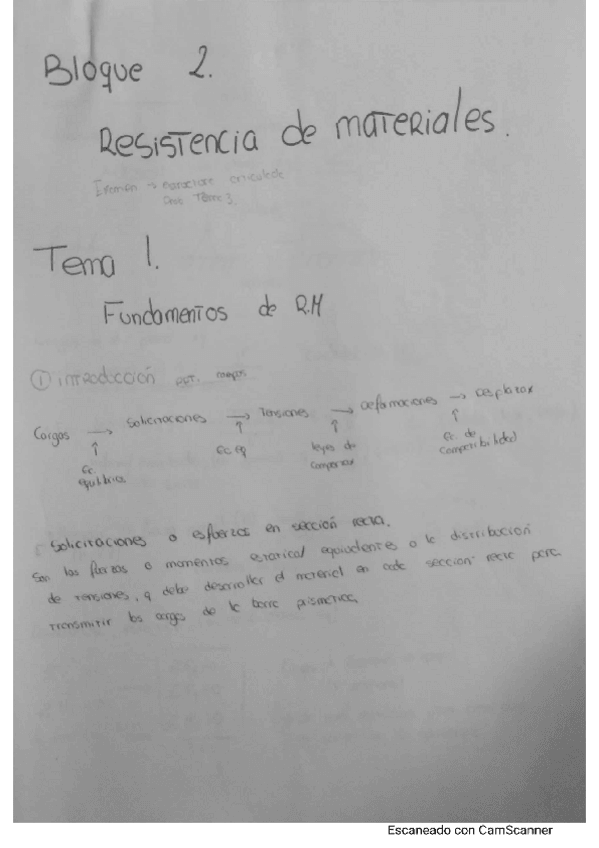 Bloque 2.
Resistencia de materiales.
Examen →
Tema 3.
Tema 1.
Fundamentos de R.M
① introducción
Cargas → Solicitaciones → Tensiones → deformaciones → desplazax
↑ ↑ ↑ ↑
Ec. equilibrio Ec eq leyes de comportax Ec. de compatibilidad
Solicitaciones o esfuerzos en sección recta.
Son las fuerzas o momentos estatical equivalentes a la distribución
de tensiones, q debe desarrollar el material en cada sección recta para
transmitir las cargas de la barra prismática.
Escaneado con CamScanner